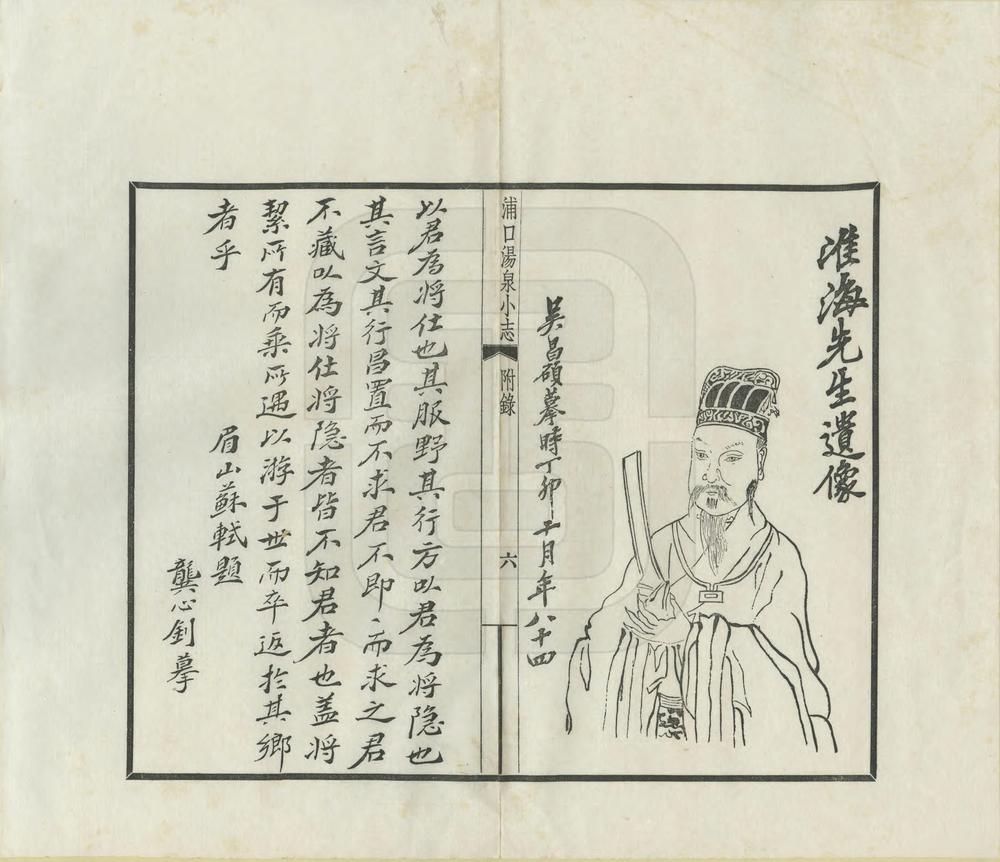 淮海先生遺像
吳昌碩摹時丁卯十月年八十四
浦口湯泉小志
附錄
六
以君為将仕也其服野其行方以君為将隐也
其言文其行昌置而不求君不即、而求之君
不藏以為将仕将隐者皆不知君者也盖将
絜所有而乘所遇以游于世而卒返於其鄉
者乎
眉山蘇軾題
龔心釗摹